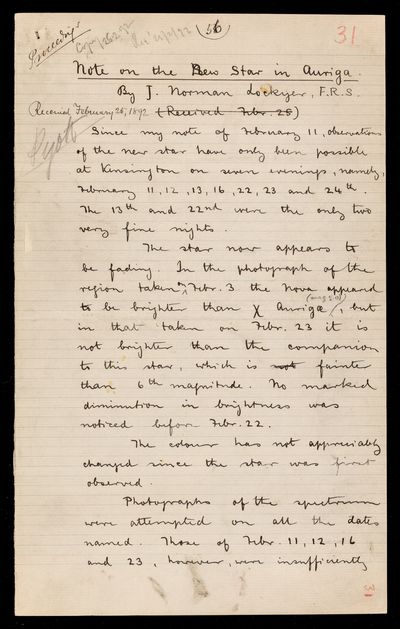 Proceedings
56
31
Note on the New Star in Auriga.
By J. Norman Lockyer, F.R.S.
Received February 25, 1892 (Received Febr. 25)
Since my note of February 11, observations
of the new star have only been possible
at Kensington on seven evenings, namely,
February 11, 12, 13, 16, 22, 23 and 24th.
The 13th and 22nd were the only two
very fine nights.
The star now appears to
be fading. In the photograph of the
region taken on Febr. 3 the Nova appeared
to be brighter than χ Aurigæ (mag 5.0), but
in that taken on Febr. 23 it is
not brighter than the companion
to this star, which is not fainter
than 6th magnitude. No marked
diminution in brightness was
noticed before Febr. 22.
The colour has not appreciably
changed since the star was first
observed.
Photographs of the spectrum
were attempted on all the dates
named. Those of Febr. 11, 12, 16
and 23, however, were insufficiently